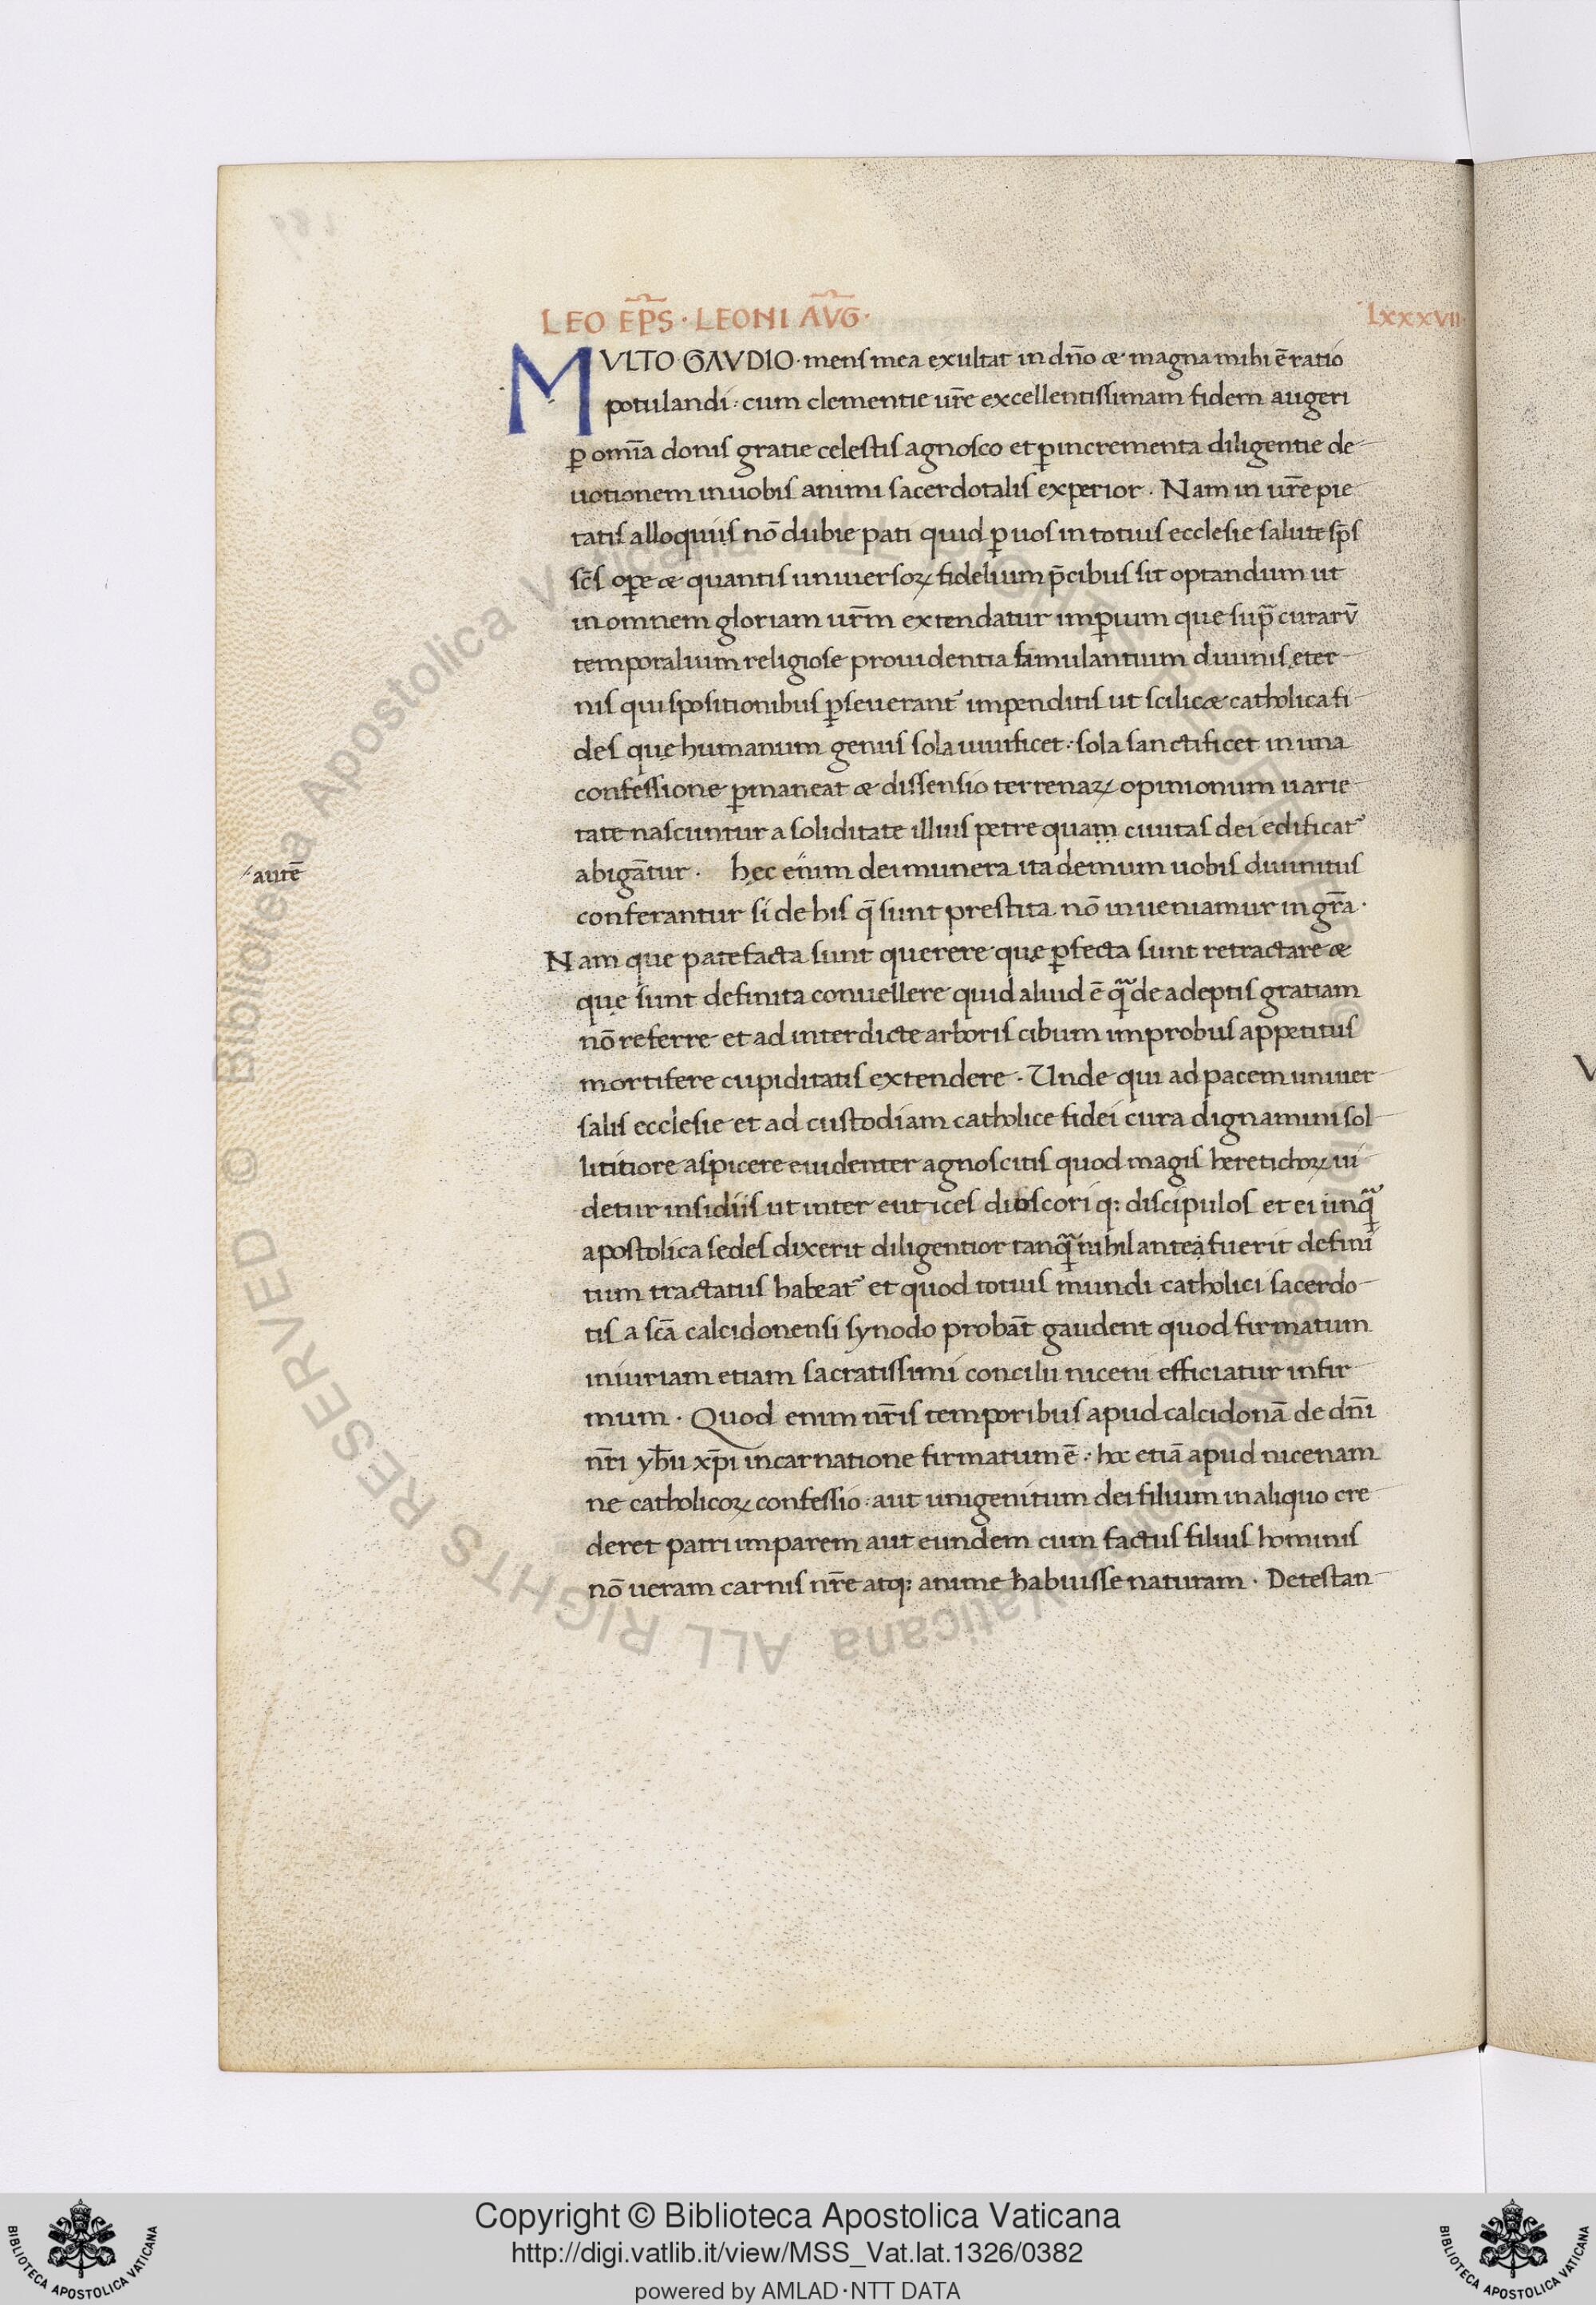 LEO EP̄S · LEONI AVḠ · LXXXVII·
MVLTO GAVDIO · mens mea exultat in dn̄o & magna mihi ē ratio
potulandi · cum clementie ur̄e excellentissimam fidem augeri
ꝑ om̄ia donis gratie celestis agnosco et ꝑ incrementa diligentie de-
uotionem in uobis animi sacerdotalis experior · Nam in ur̄e pie
tatis alloquiis nō dubie pati quid ꝑ uos in totius ecclesie salute sp̄s
sc̄s oꝑe & quantis uniuersoꝝ fidelium p̄cibus sit optandum ut
in omnem gloriam ur̄m extendatur imꝑium que sup̄ curarū
temporalium religiose prouidentia famulantium diuinis eter-
nis quispositionibus ꝑseuerant᾽ impenditis ut scilic& catholica fi-
des que humanum genus sola uiuificet · sola sanctificet in una
confessione ꝑmaneat & dissensio terrenaꝝ opinionum uarie-
tate nascuntur a soliditate illius petre quam ciuitas dei edificat᾽
abigāt̄ur · hęc enim dei munera ita demum uobis diuinitus
autē
conferantur si de his q̄ sunt prestita nō inueniamur ingr̄a ·
Nam que patefacta sunt querere quę ꝑfecta sunt retractare &
quę sunt definita conuellere quid aliud ē qᷓ de adeptis gratiam
nō referre et ad interdicte arboris cibum improbus appetitus
mortifere cupiditatis extendere · Unde qui ad pacem uniuer-
salis ecclesie et ad custodiam catholice fidei cura dignamini sol-
lititiore aspicere euidenter agnoscitis quod magis heretichoꝝ ui-
detur insidiis ut inter eut ices dioscori q: discipulos et ei unqᷓ
apostolica sedes dixerit diligentior tanqᷓ nihil antea fuerit defini
tum tractatus habeat᾽ et quod totius mundi catholici sacerdo-
tis a sc̄a calcidonensi synodo probāt gaudent quod firmatum
iniuriam etiam sacratissimi concilii niceni efficiatur infir-
mum · Quod enim nr̄is temporibus apud calcidonā de dn̄i
nr̄i yh̄u xp̄i incarnatione firmatum ē · hoc etiā apud nicenam
ne catholicoꝝ confessio · aut unigenitum dei filium in aliquo cre-
deret patri imparem aut eundem cum factus filius hominis
nō ueram carnis nr̄e atq: anime habuisse naturam · Detestan-
Copyright © Biblioteca Apostolica Vaticana
http://digi.vatlib.it/view/MSS_Vat.lat.1326/0382
powered by AMLAD·NTT DATA
BIBLIOTECA APOSTOLICA VATICANA
BIBLIOTECA APOSTOLICA VATICANA
© Biblioteca Apostolica Vaticana ALL RIGHTS RESERVED © Biblioteca Apostolica Vaticana ALL RIGHTS RESERVED